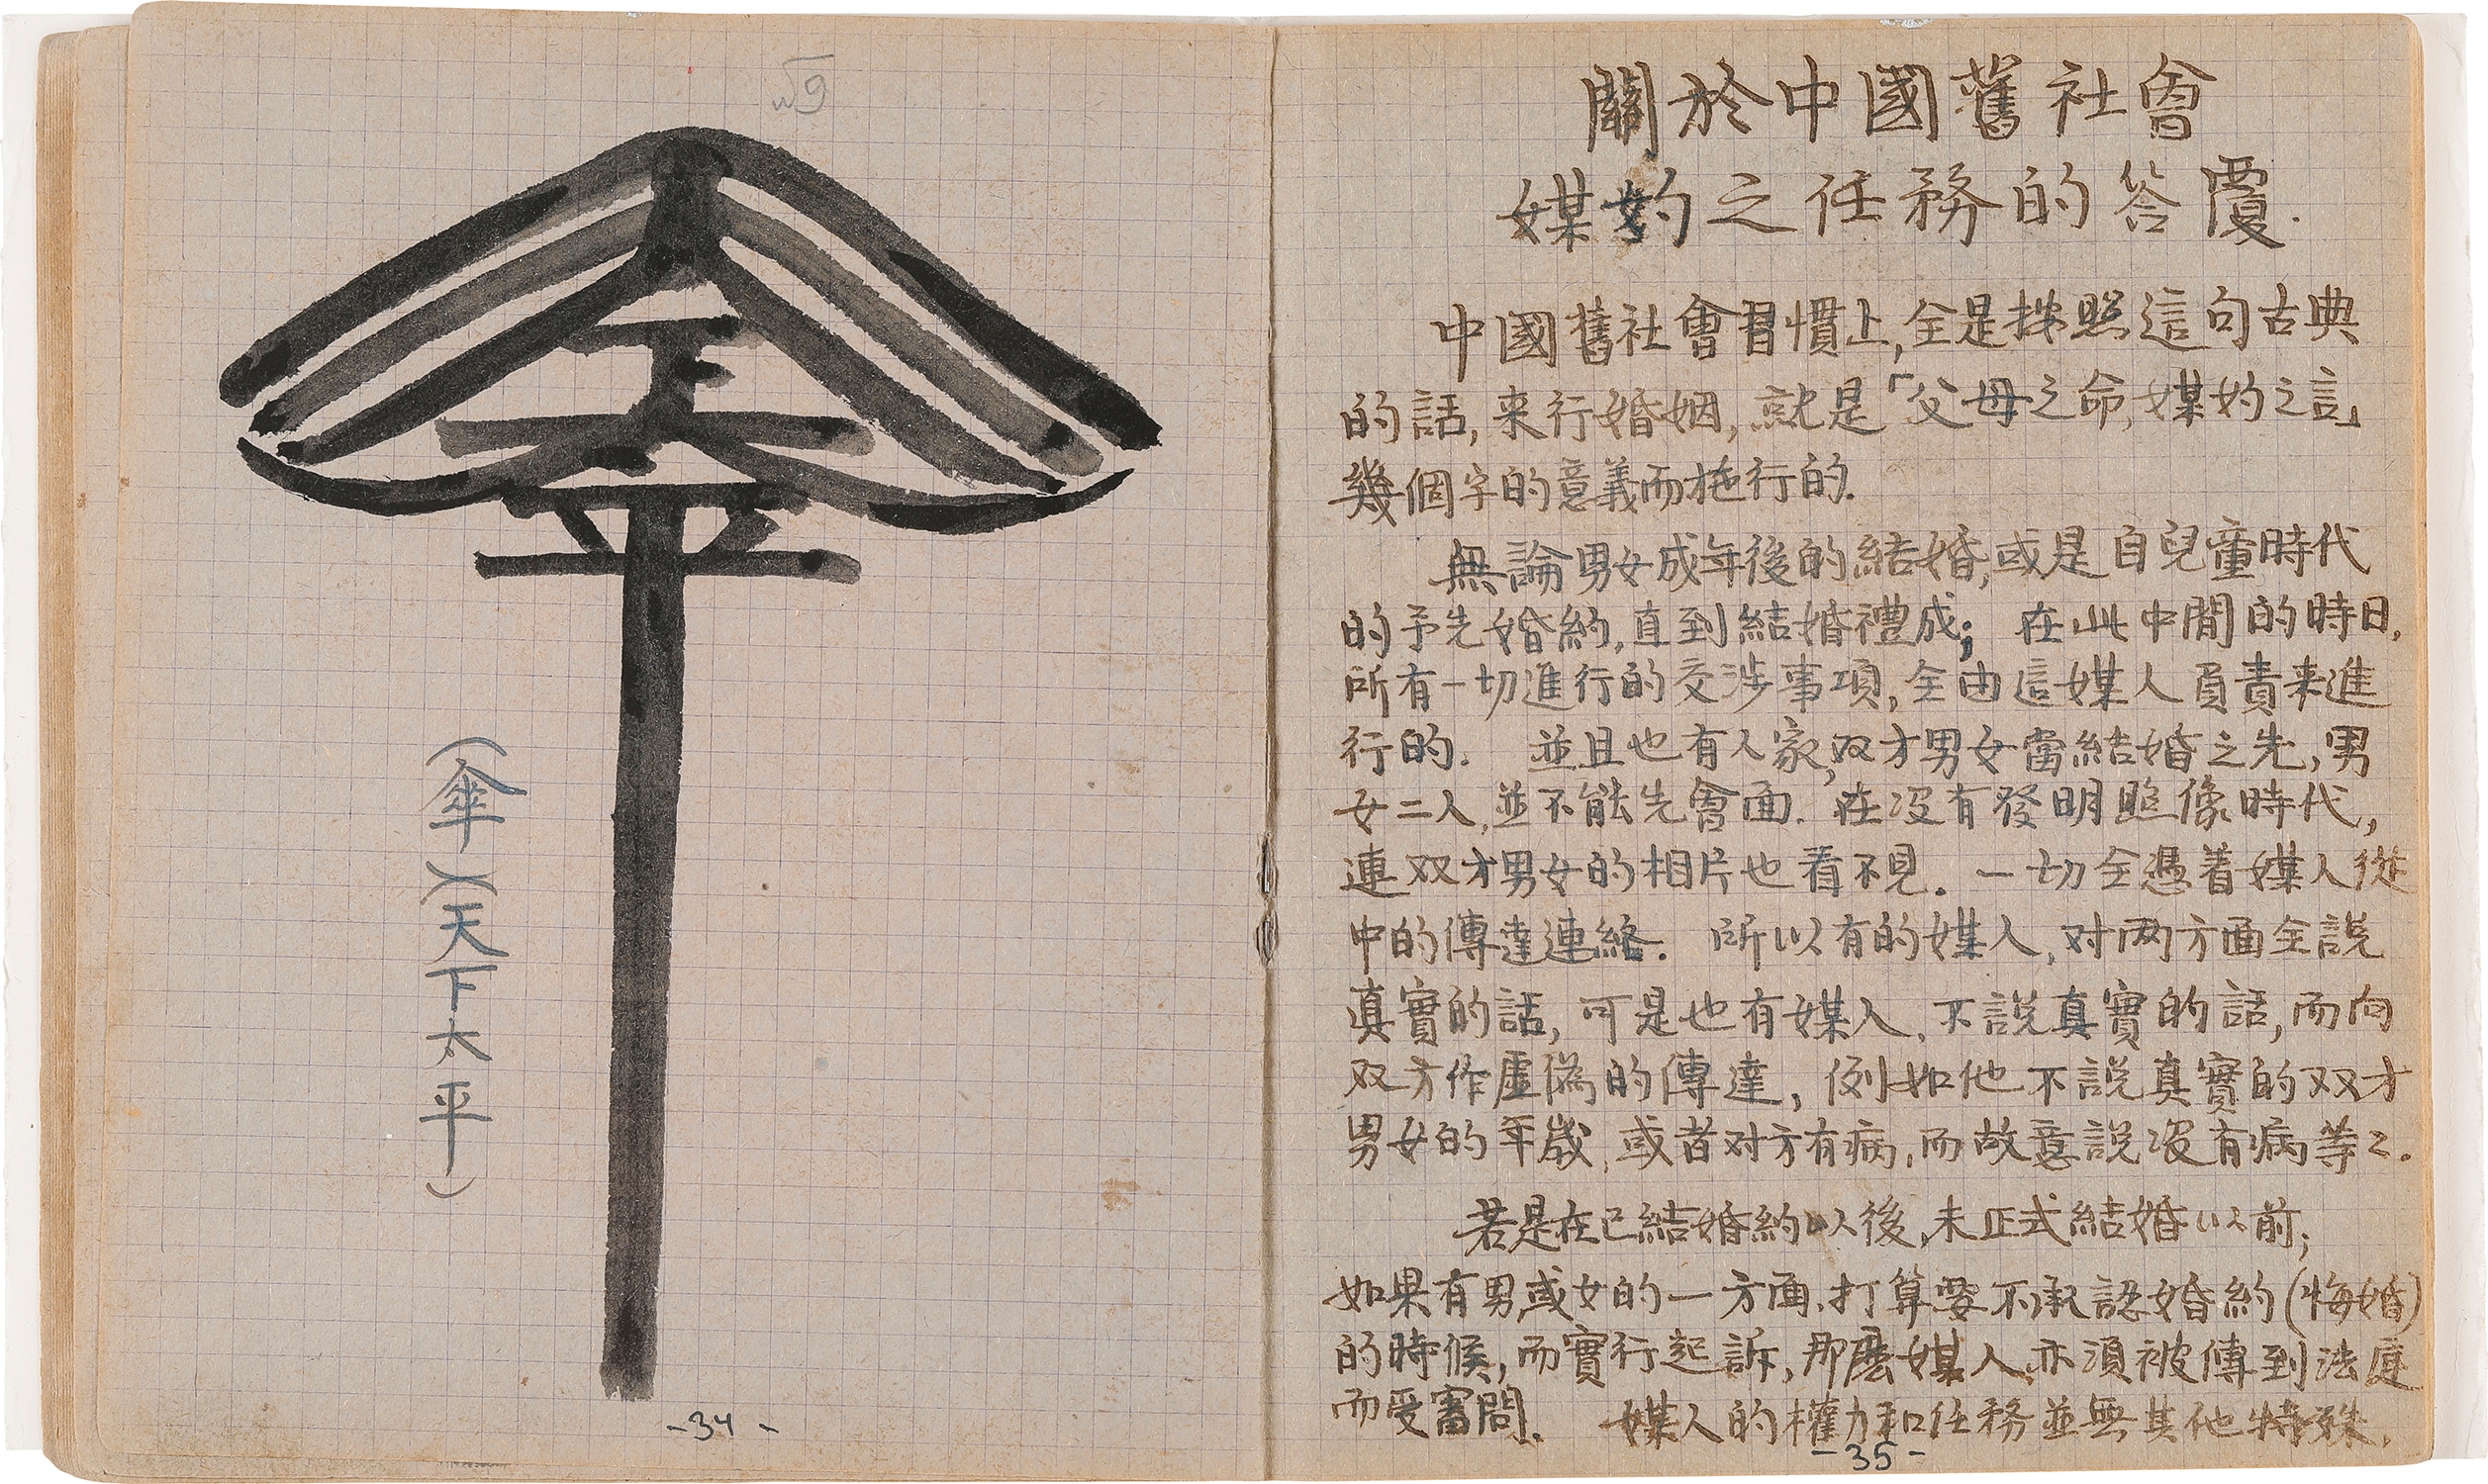 (傘)(天下太平)
-34-
關於中國舊社會
媒妁之任務的答覆.
中國舊社會習慣上,全是按照這句古典
的話,来行婚姻,就是「父母之命,媒妁之言」
幾個字的意義而施行的.
無論男女成年後的結婚,或是自兒童時代
的予先婚約,直到結婚禮成;在此中間的時日,
所有一切進行的交涉事項,全由這媒人負責来進
行的. 並且也有人家,双方男女當結婚之先,男
女二人,並不能先會面.在没有發明照像時代,
連双方男女的相片也看不見.一切全憑着媒人從
中的傳達連絡. 所以有的媒人,对两方面全説
真實的話,可是也有媒人,不説真實的話,而向
双方作虛偽的傳達,例如他不説真實的双方
男女的年歲,或者对方有病,而故意説没有病等〻.
若是在已結婚約以後,未正式結婚以前;
如果有男或女的一方面,打算要不承認婚約(悔婚)
的時候,而實行起訴,那麼媒人,亦須被傳到法庭
而受審問. 媒人的權力和任務並無其他特殊.
-35-